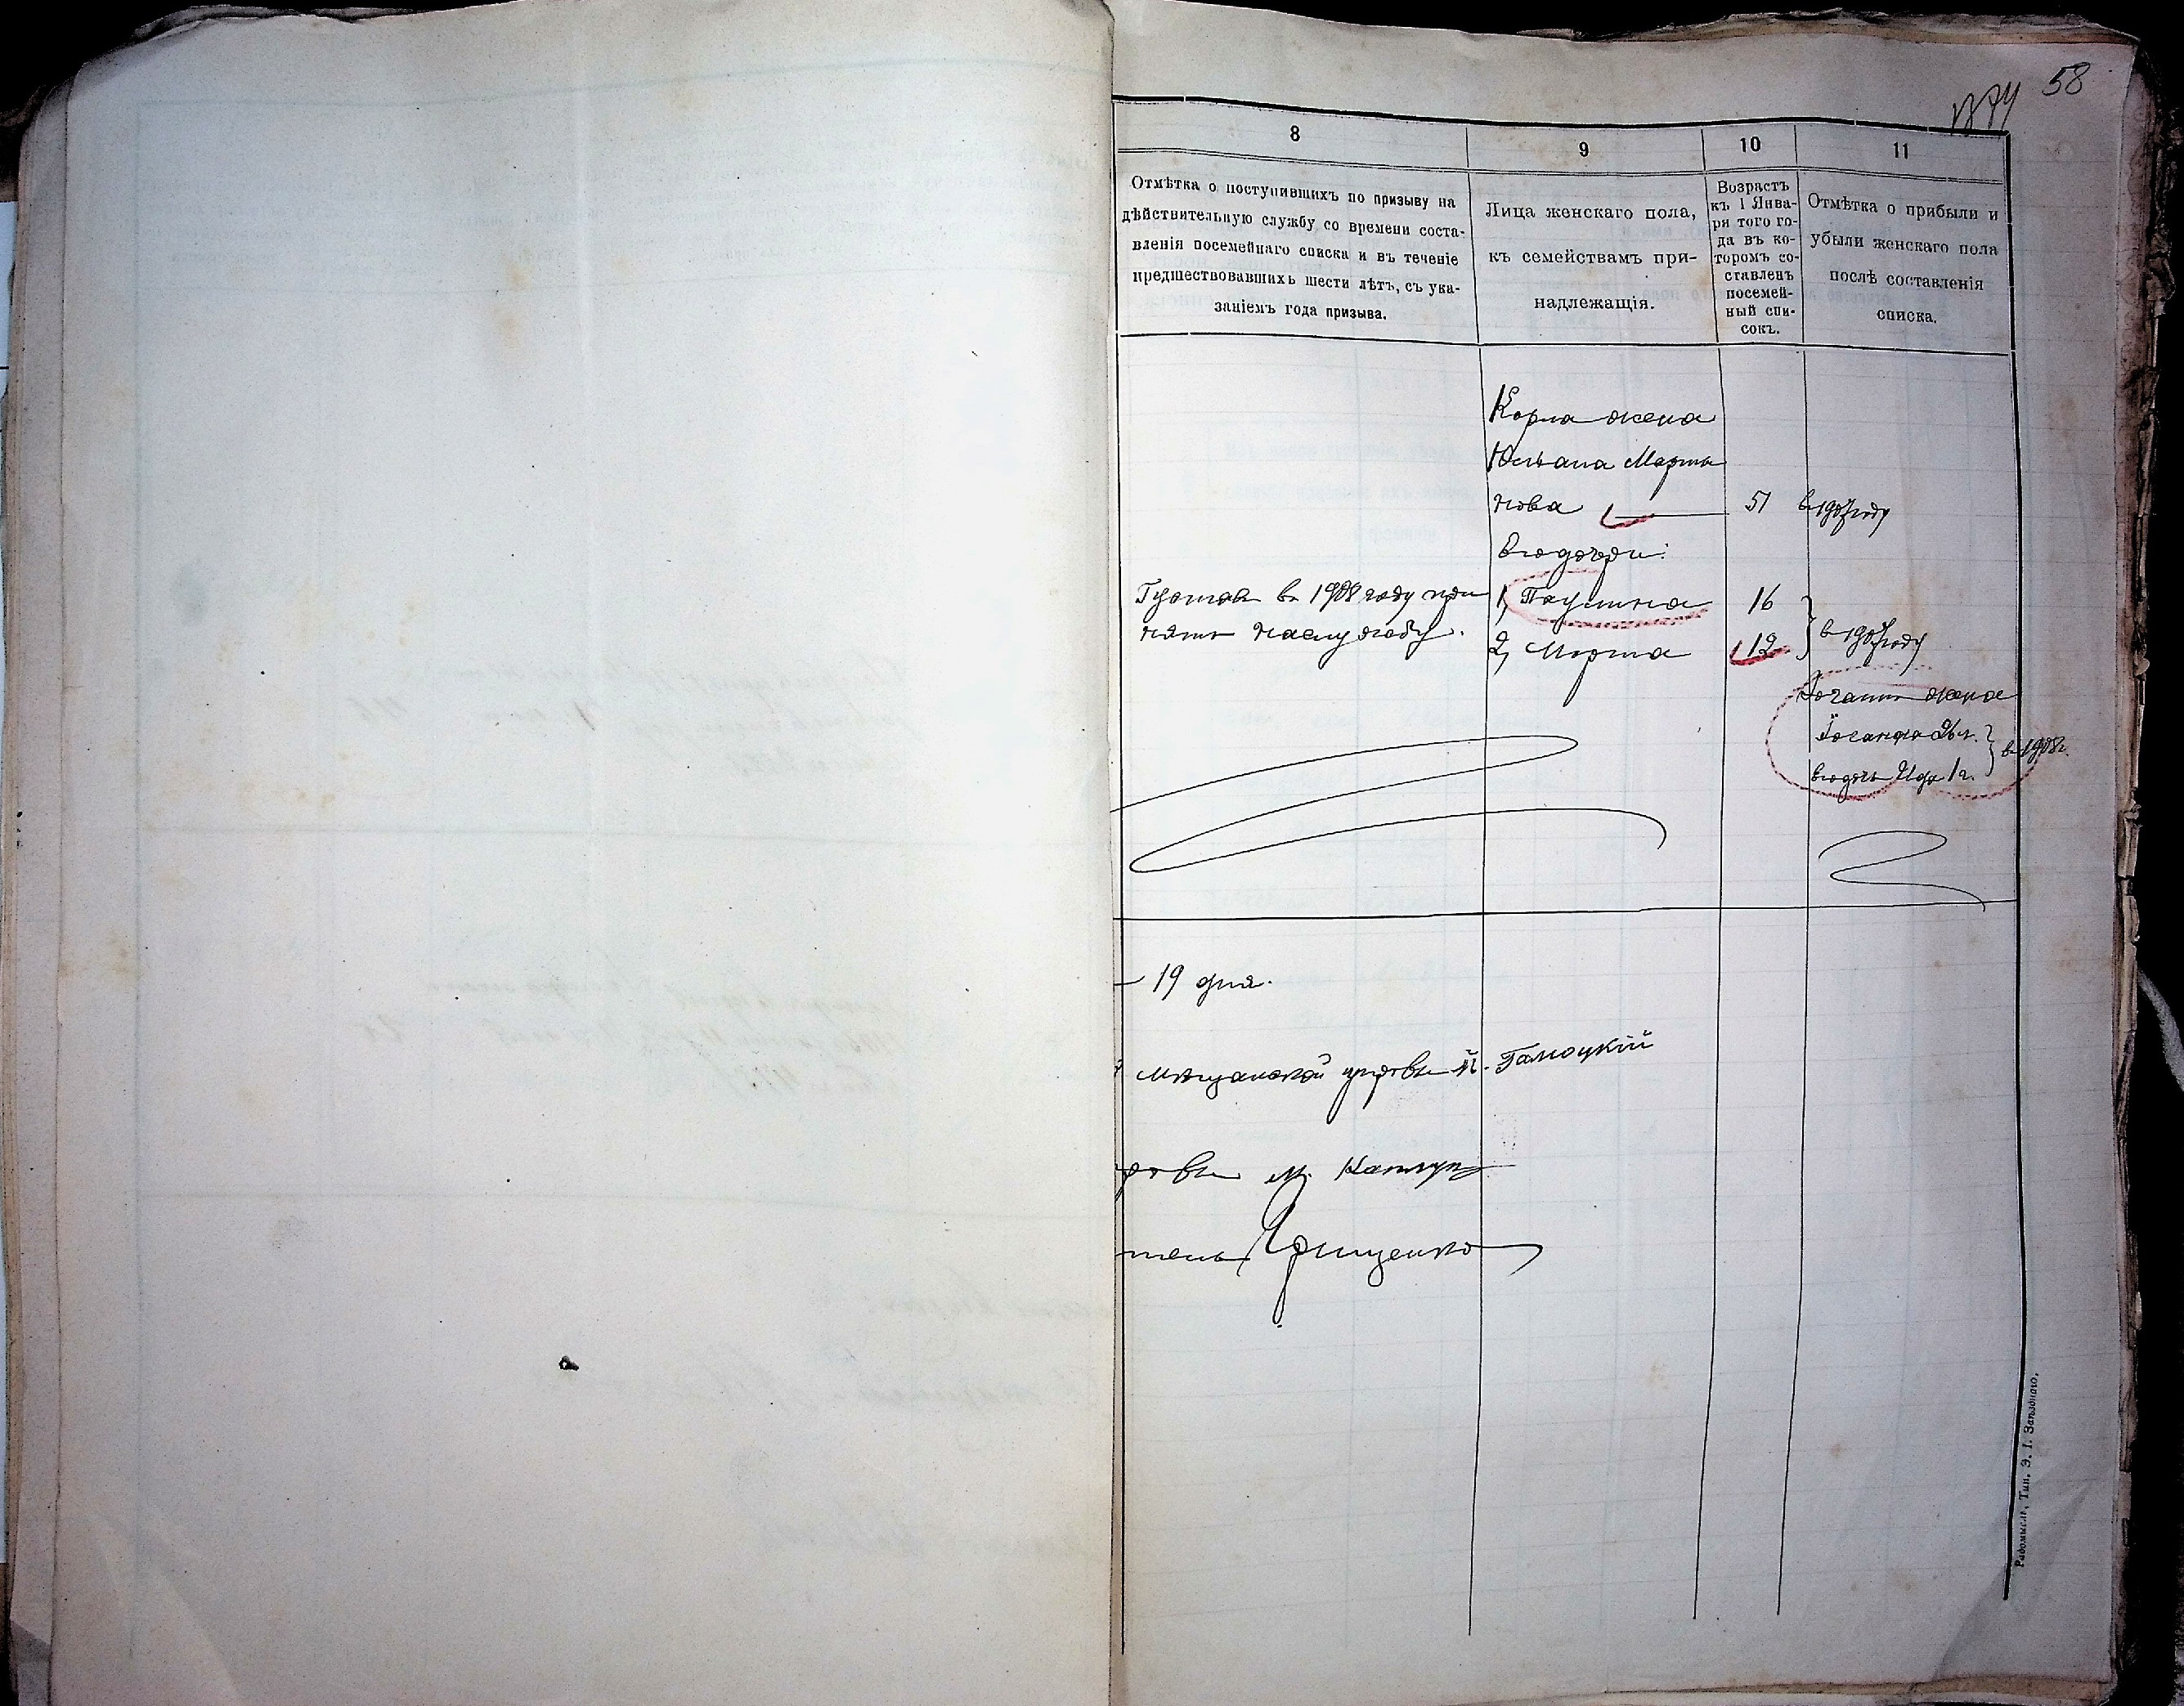 58
8
9
10
11
Отмѣтка о поступившихъ по призыву на
дѣйствительную службу со времени соста-
вленія посемейнаго списка и въ теченіе
предшествовавшихъ шести лѣтъ, съ ука-
заніемъ года призыва.
Лица женскаго пола,
къ семействамъ при-
надлежащія.
Возрастъ
къ 1 Янва-
ря того го-
да въ ко-
торомъ со-
ставленъ
посемей-
ный спи-
сокъ.
Отмѣтка о прибыли и
убыли женскаго пола
послѣ составленія
списка.
Карла жена
Юльана Марти
нова
51
в 1907 году
Его дочери:
Густав в 1908 году при
нят на службу.
1, Паулина
16
2, Марта
12
в 1907 году
жена
26 л.
его дочь Ида 1 г.
в 1908 г.
19 дня.
Мѣщанской управы
равы М.
тель Грищенко
Радомысль, Тип. Э. І. Заѣздного.